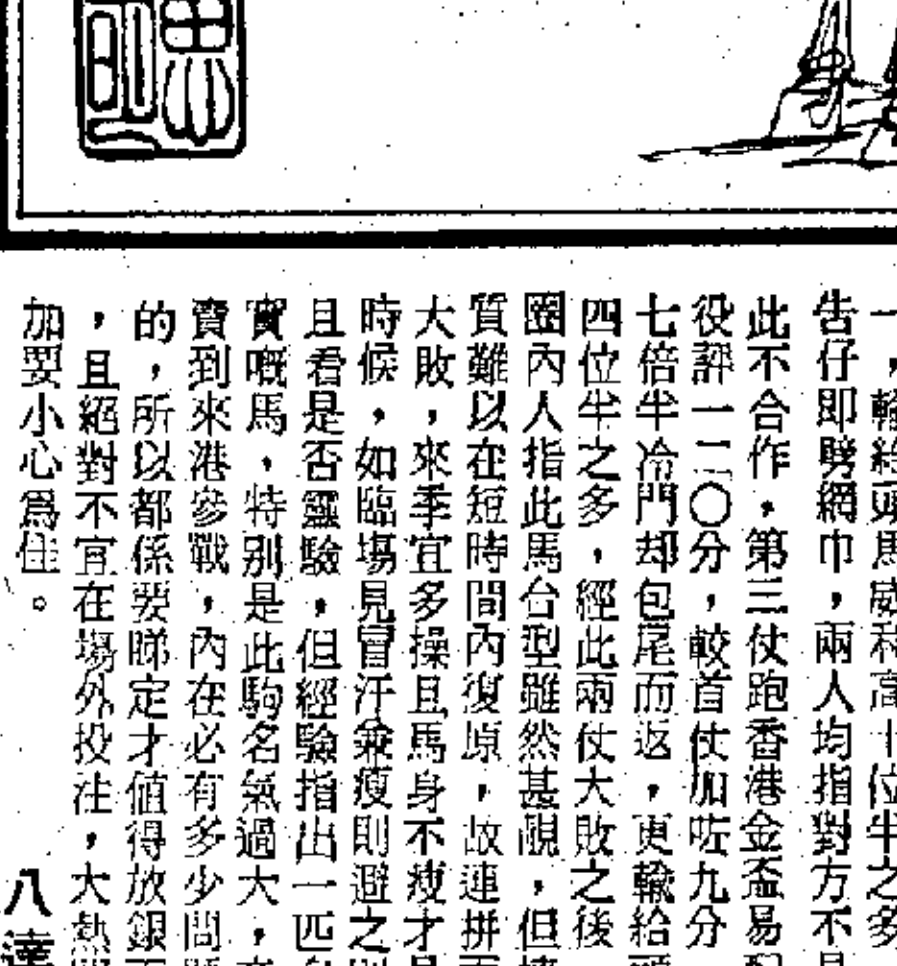 一，輸給頭馬威利高十位半之多
告仔即劈網巾，兩人均指對方不
此不合作。第三仗跑香港金盃易
役評一二〇分，較首仗加咗九分
七倍半冷門却包尾而返，更輸給
四位半之多，經此兩仗大敗之後
圈內人指此馬台型雖然甚靚，但
質難以在短時間內復原，故連拼
大敗，來季宜多操且馬身不瘦才
時候，如臨場見冒汗兼瘦則避之
且看是否靈驗，但經驗指出一匹
實嘅馬，特別是此駒名氣過大，
賣到來港參戰，內在必有多少問
的，所以都係要睇定才值得放銀
，且絕對不宜在場外投注，大熱
加要小心爲佳。
八達